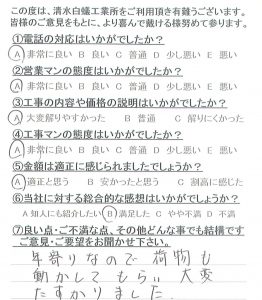 この度は、清水白蟻工業所をご利用頂き有難うございます。
皆様のご意見をもとに、より喜んで戴ける様努めて参ります。
①電話の対応はいかがでしたか?
A 非常に良い B 良い C 普通 D 少し悪い E 悪い
②営業マンの態度はいかがでしたか?
A 非常に良い B 良い C 普通 D 少し悪い E 悪い
③工事の内容や価格の説明はいかがでしたか?
A 大変解りやすかった B 普通 C 解りにくかった
④工事マンの態度はいかがでしたか?
A 非常に良い B 良い C 普通 D 少し悪い E 悪い
⑤金額は適正に感じられましたでしょうか?
A 適正と思う B 安かったと思う C 割高に感じた
⑥当社に対する総合的な感想はいかがでしょうか?
A 知人にも紹介したい B 満足した C やや不満 D 不満
⑦良い点・ご不満な点、その他どんな事でも結構です
ご意見・ご要望をお聞かせ下さい。
年寄りなので荷物も
動かしてもらい大変
たすかりました。